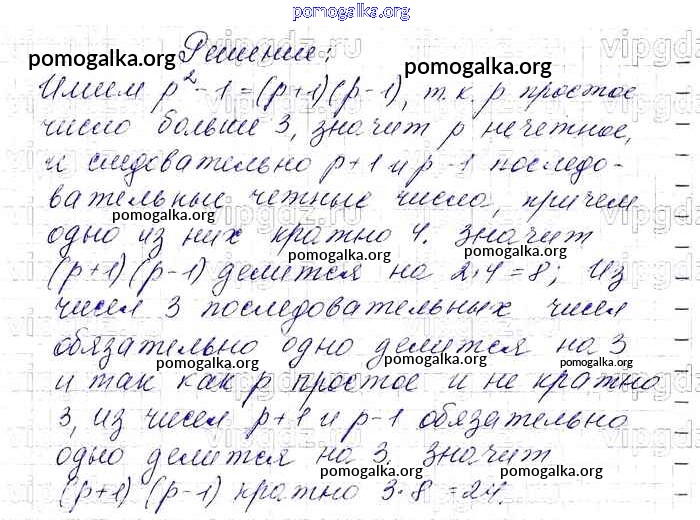 pomogalka.org
Решение:
pomogalka.org
pomogalka.org
Имеем p²-1=(p+1)(p-1), т.к. p простое
число больше 3, значит p нечетное,
и следовательно p+1 и p-1 последо-
вательные четные числа, причем
pomogalka.org
одно из них кратно 4. Значит
pomogalka.org
pomogalka.org
(p+1)(p-1) делится на 2·4=8; Из
чисел 3 последовательных чисел
обязательно одно делится на 3
pomogalka.org
pomogalka.org
pomogalka.org
и так как p простое и не кратно
3, из чисел p+1 и p-1 обязательно
одно делится на 3. Значит
pomogalka.org
pomogalka.org
(p+1)(p-1) кратно 3·8=24.
vipgdz.ru